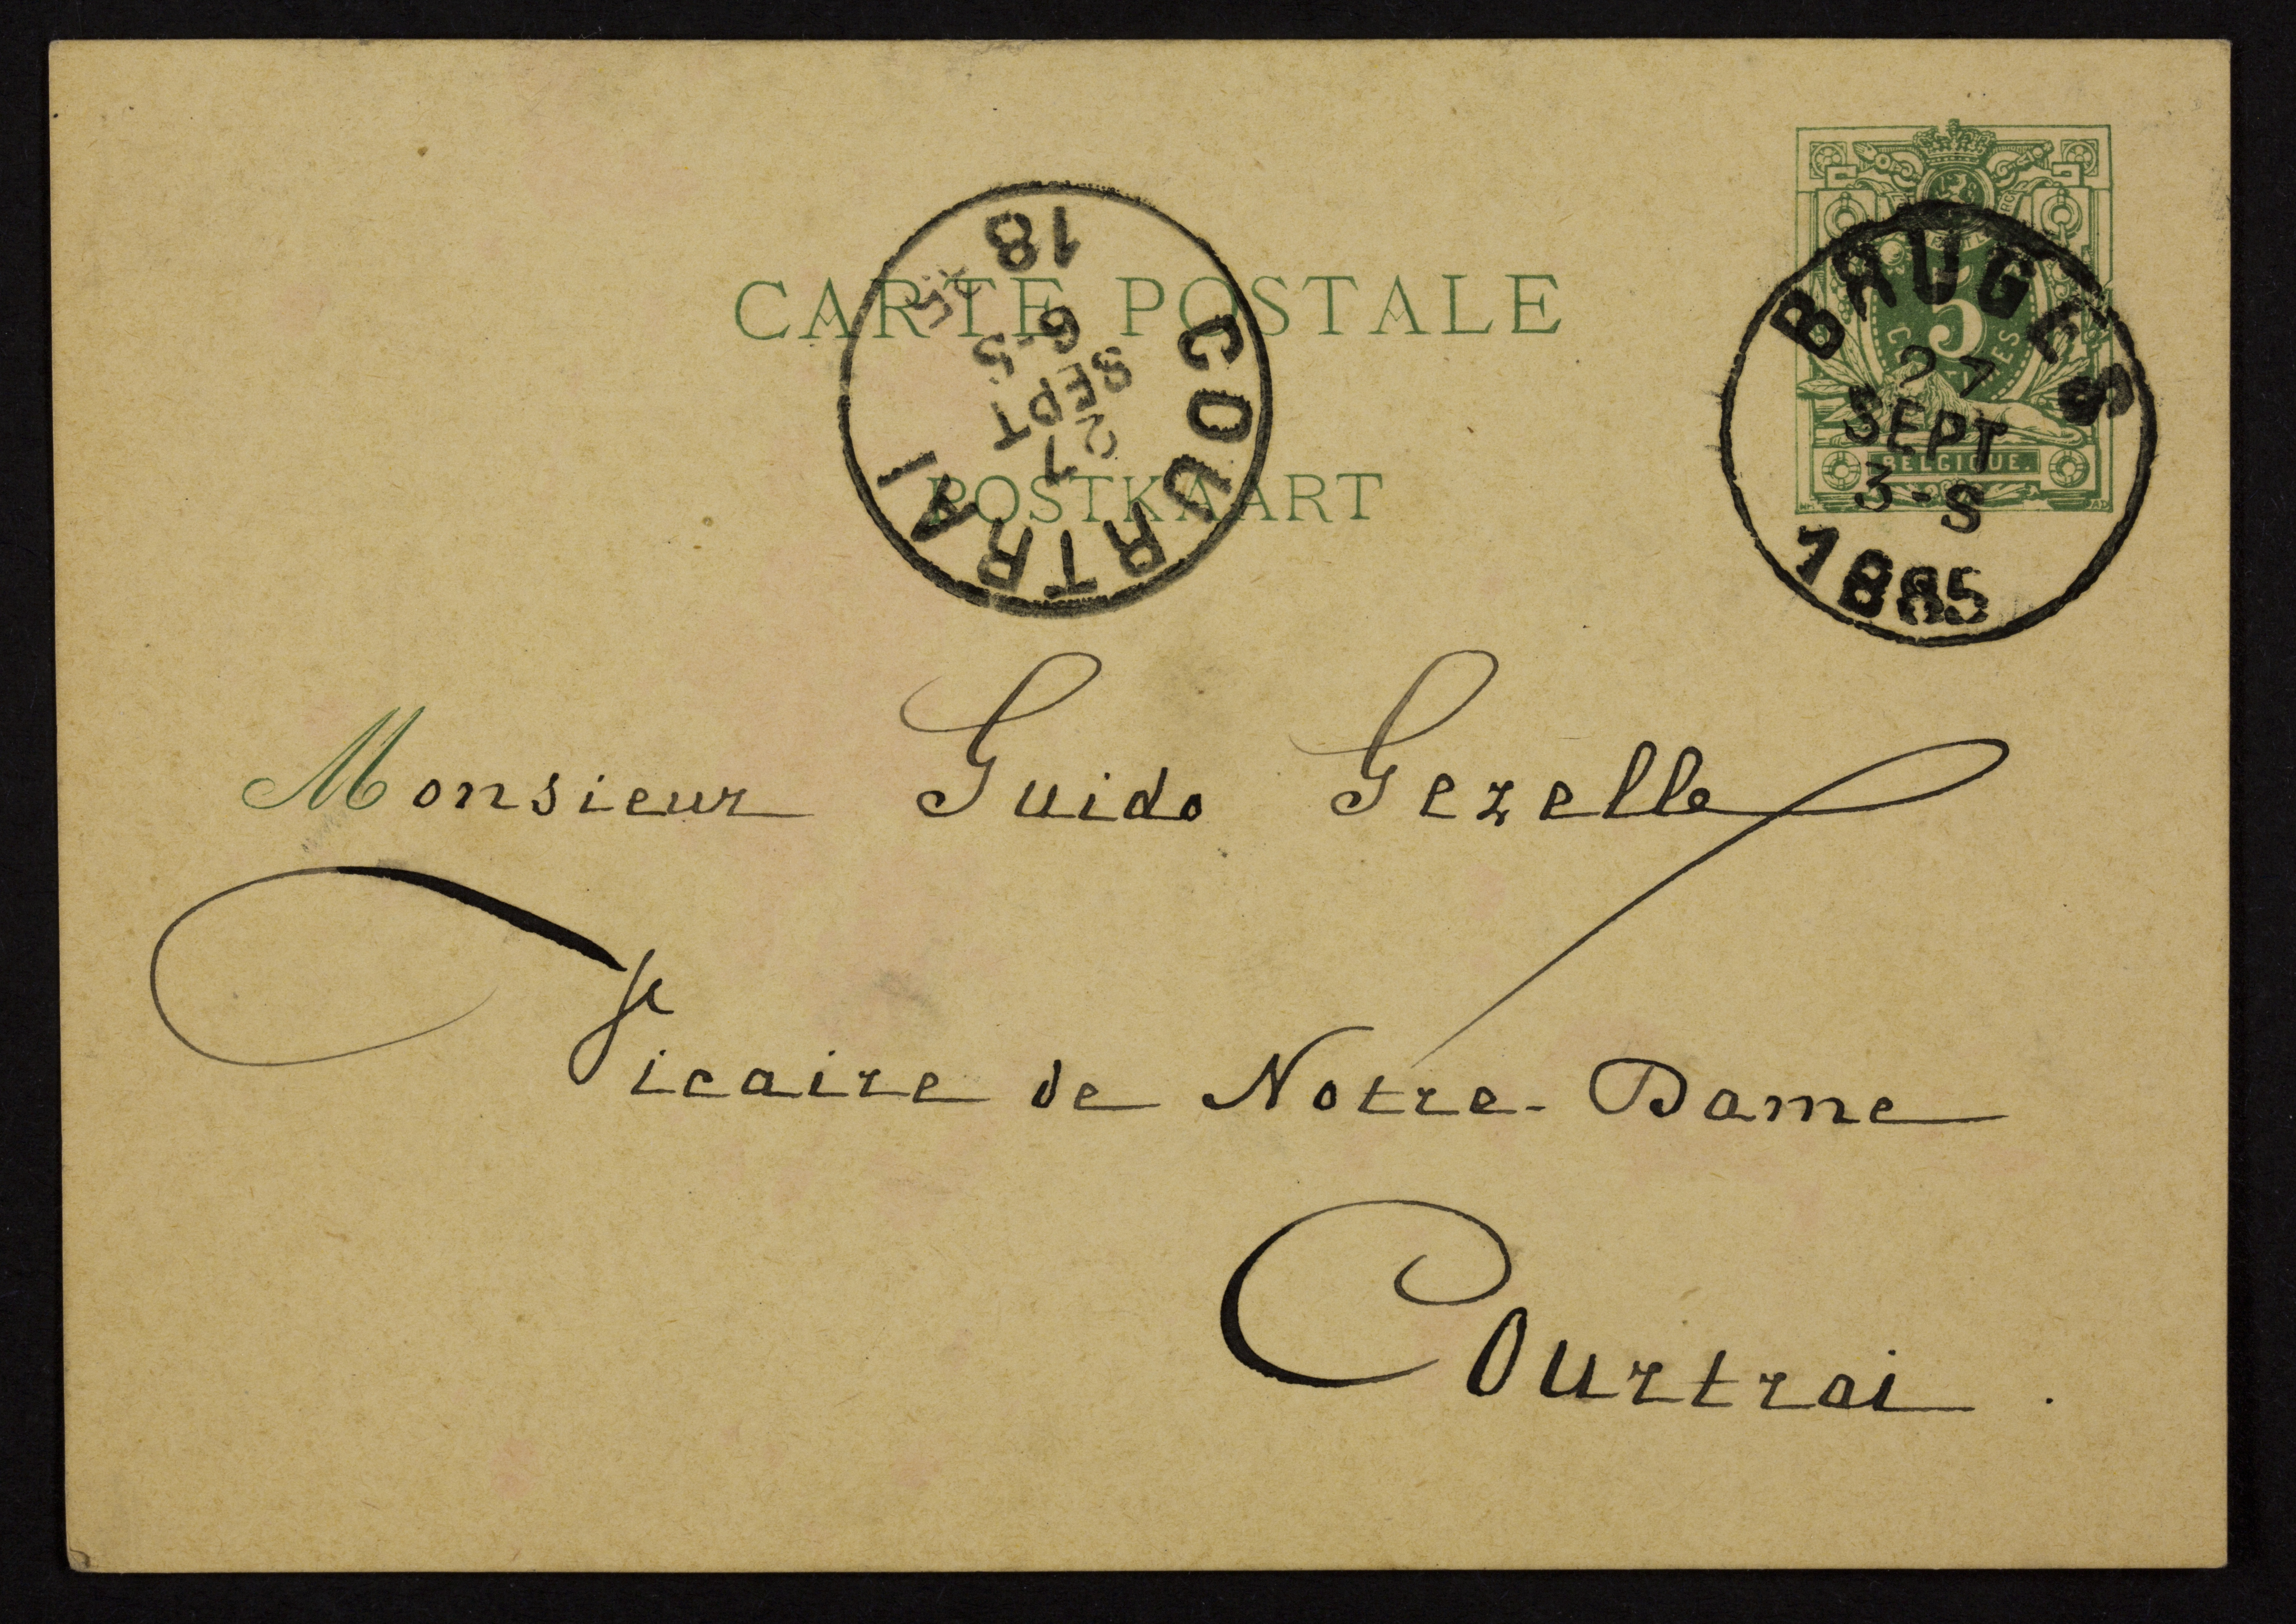 CARTE POSTALE
POSTKAART
COURTRAI
27
SEPT
6-S
18 85
5
BELGIQUE.
BRUGES
27
SEPT
3-S
1885
Monsieur Guido Gezelle
Vicaire de Notre-Dame
Courtrai.